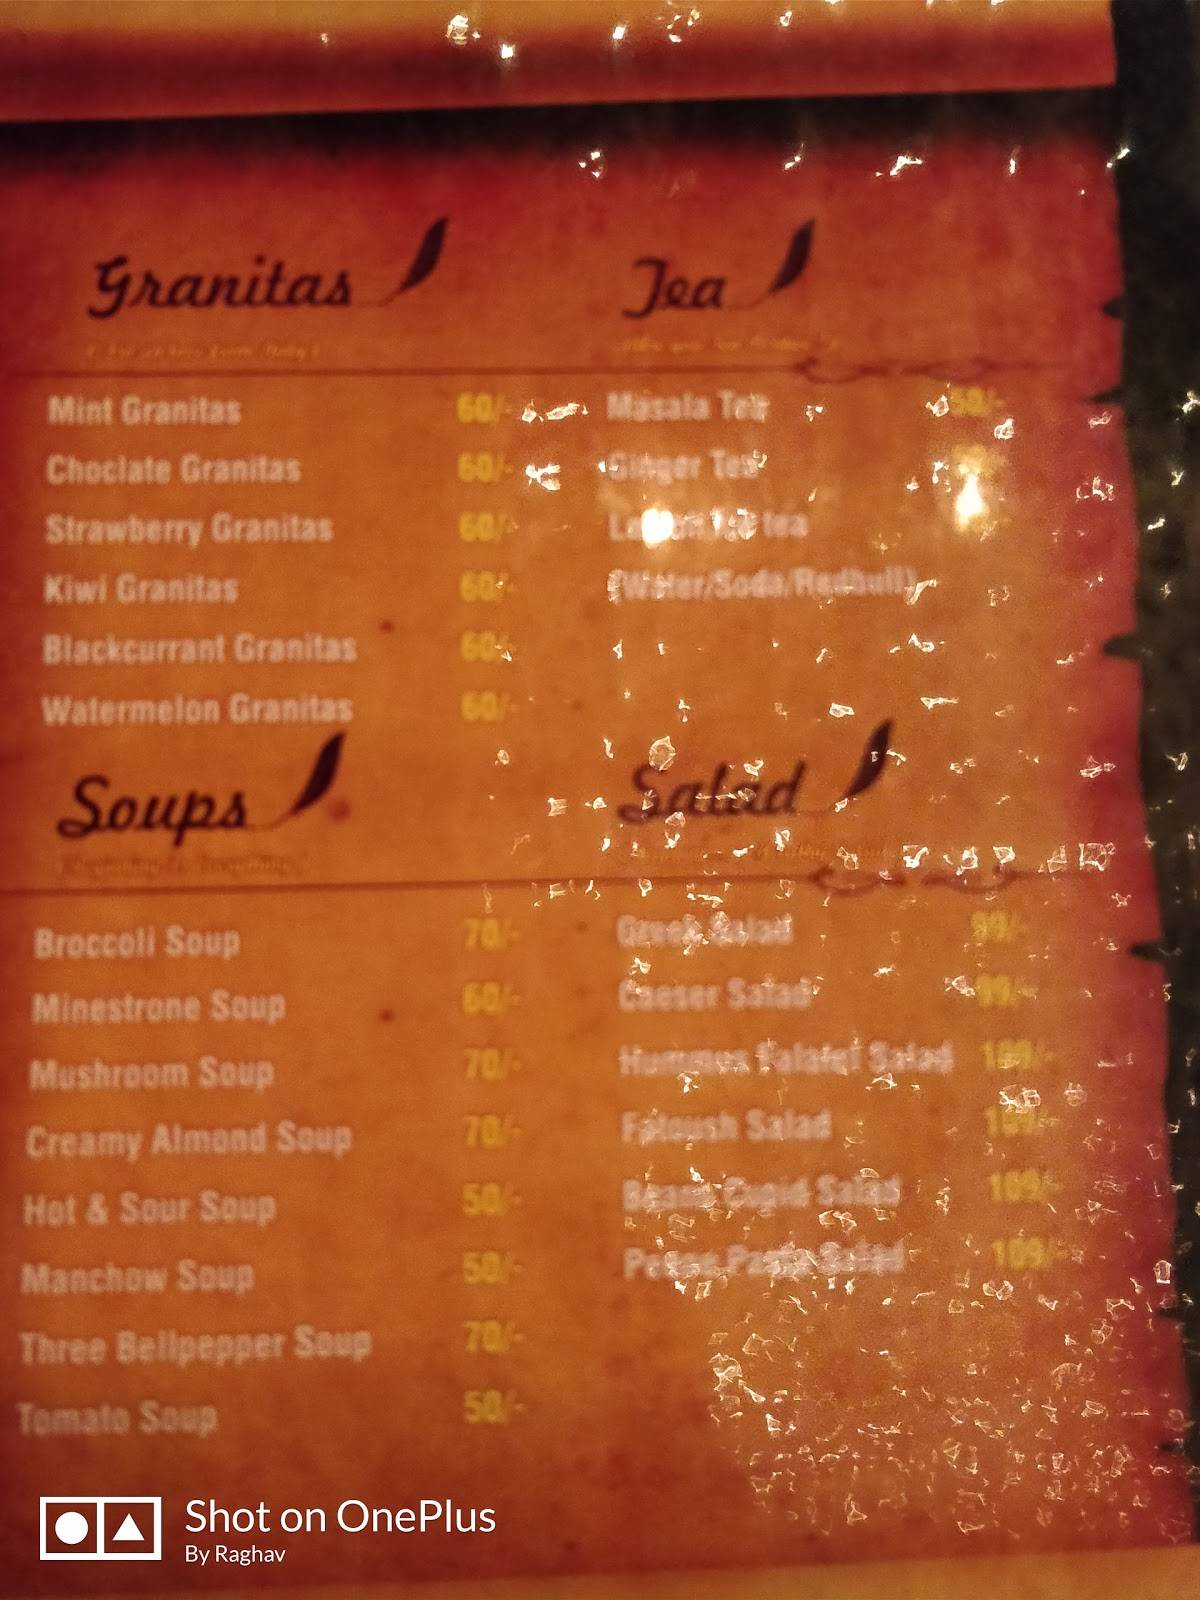 Granitas
Mint Granitas 60/-
Choclate Granitas 60/-
Strawberry Granitas 60/-
Kiwi Granitas 60/-
Blackcurrant Granitas 60/-
Watermelon Granitas 60/-
Tea
Masala Tea 50/-
Ginger Tea
tea
(Water/Soda/Redbull)
Soups
Broccoli Soup 70/-
Minestrone Soup 60/-
Mushroom Soup 70/-
Creamy Almond Soup 70/-
Hot & Sour Soup 50/-
Manchow Soup 50/-
Three Bellpepper Soup 70/-
Tomato Soup 50/-
Salad
Greek Salad 99/-
Caeser Salad 99/-
Hummus Falafel Salad
Fatoush Salad
Salad 109/-
Pasta Salad 109/-
Shot on OnePlus
By Raghav